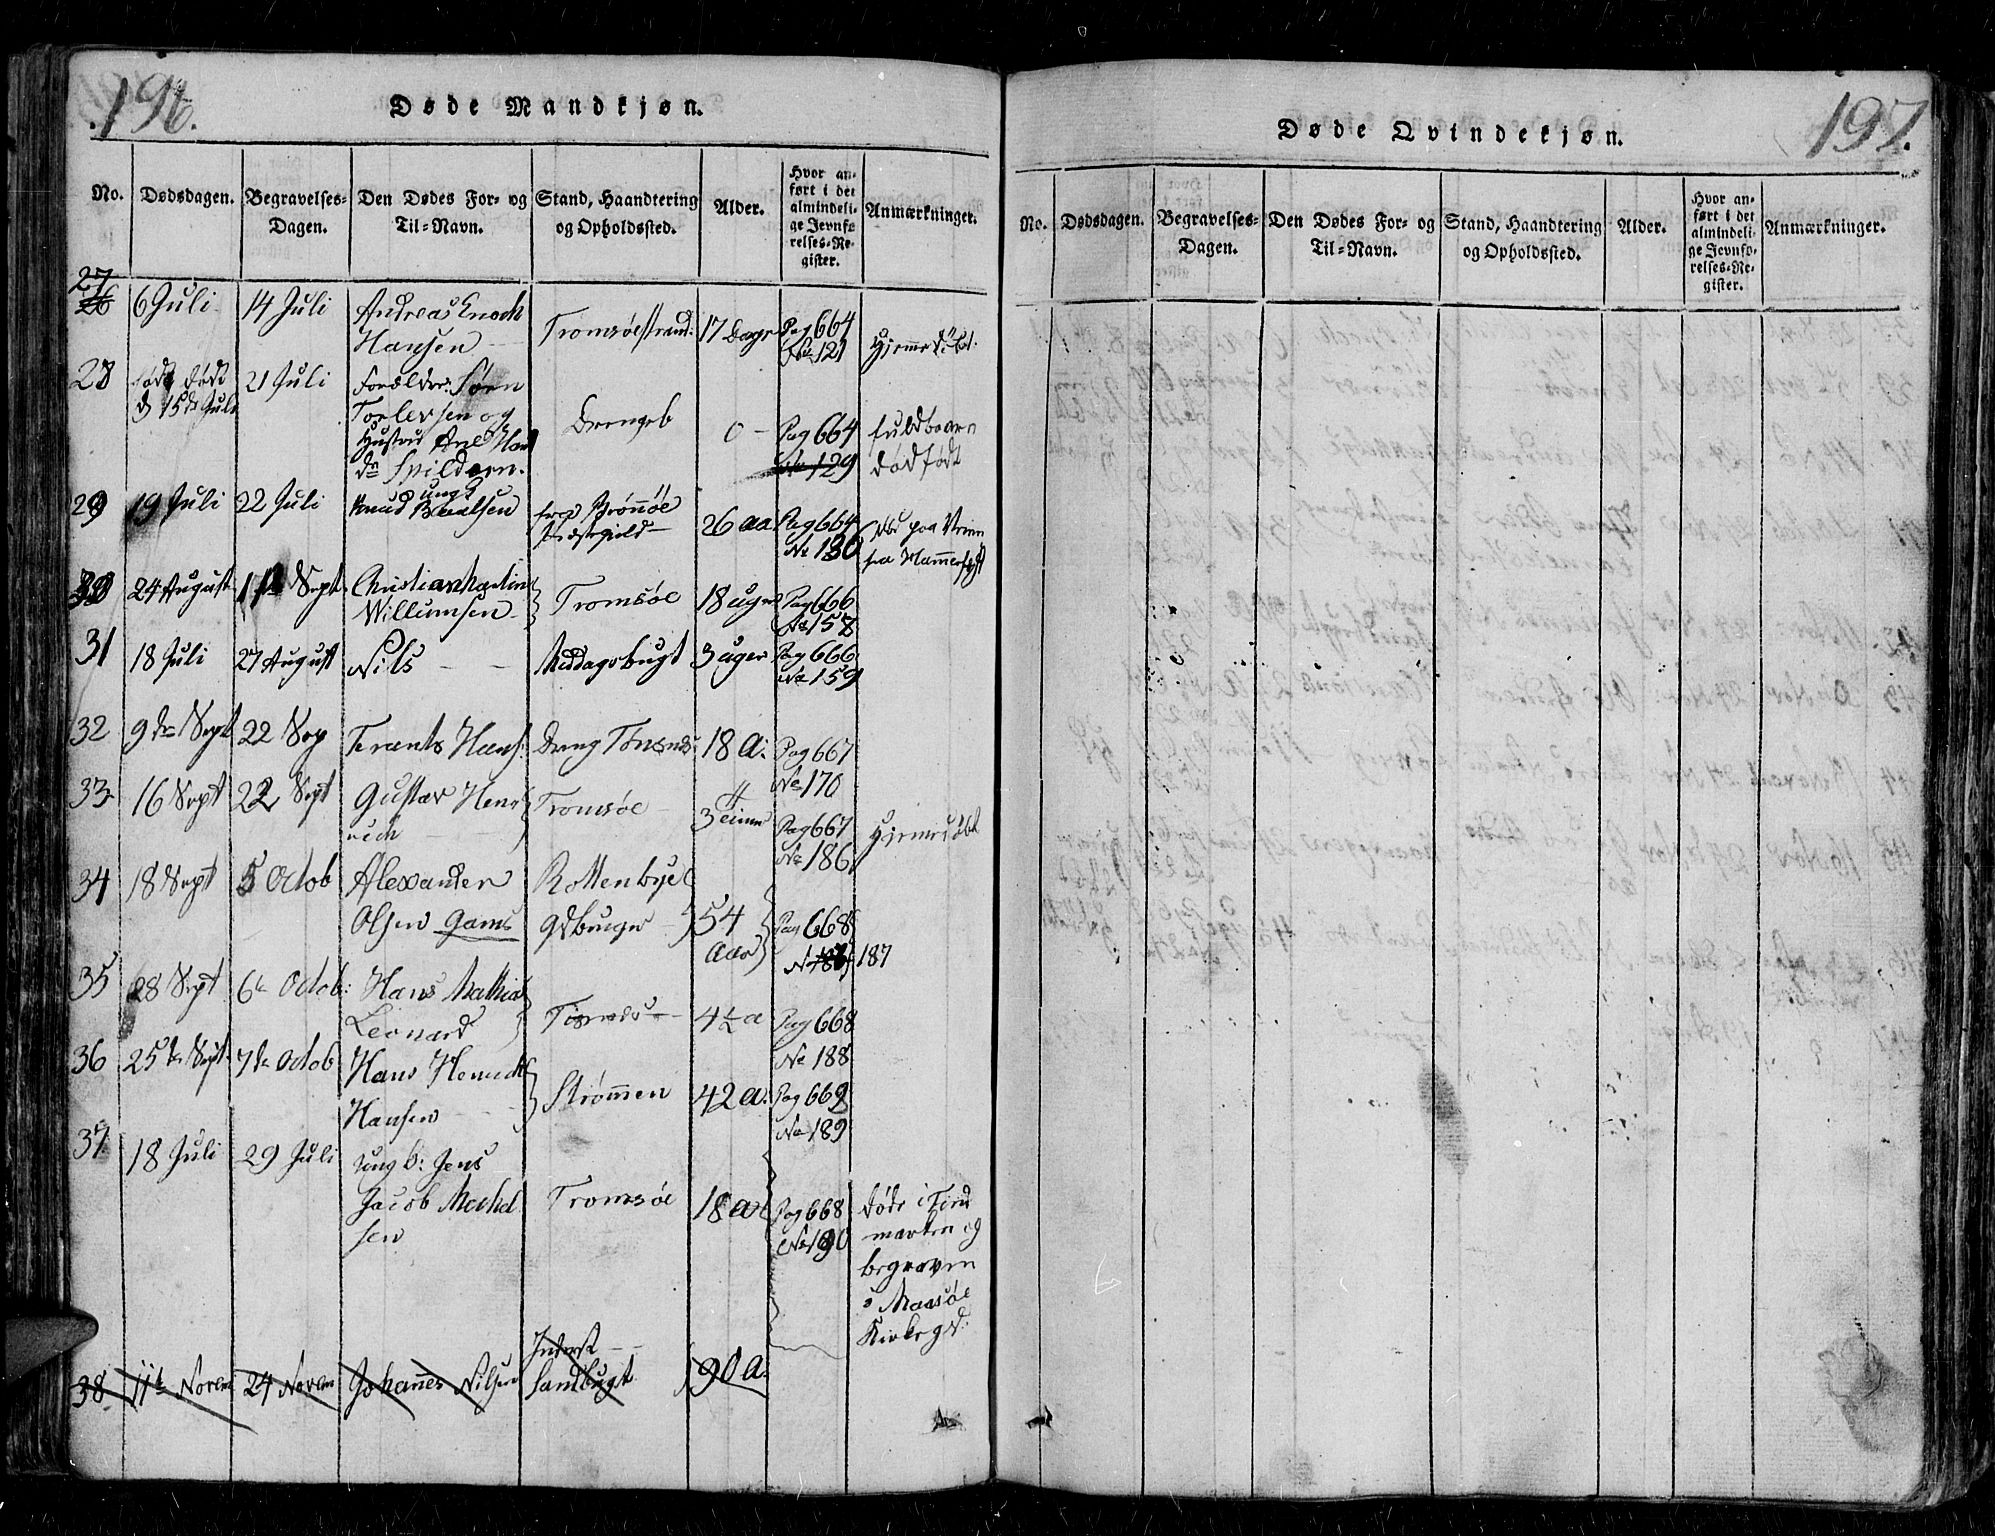 196.
Døde Mandkjøn.
No.
Dødsdagen.
Begravelses-
Dagen.
Den Dødes For- og
Til-Navn.
Stand, Haandtering
og Opholdssted.
Alder.
Hvor an-
ført i det
almindeli-
ge Jevnfø-
relses-Re-
gister.
Anmærkninger.
27
26 6 Juli 14 Juli Andreas Enoch
Hansen Tromsøestrand: 17 Dage Pag 664
No 121 Hjemedøbt.
28 født død 21 Juli Forældre: Søren
d 15de Juli Torlevsen og
Hustrue
Drengeb 0 Pag 664 fuldbaaren
No 129 dødfødt
29 19 Juli 22 Juli ungk
Knud Bentsen fra Brönöe
Præstegield 26 aa Pag 664
No 130 Død paa Veien
fra Hammerfest
30 24 August 11 Sept Christian Martin
Willumsen Tromsøe 18 uger Pag 666
No 157
31 18 Juli 27 August Nils Middagsbugt 3 uger Pag 666
No 159
32 9de Sept 22 Sep Terants Hans: Dreng Tønsnes 18 a: Pag 667
No 170
33 16 Sept 22 Sept Gustav Hen-
rich Tromsøe 3 Pag 667
No 186 Hjemedøbt
34 18 Sept 5 Octob Alexander
Olsen Gams Rottenbye
Gdbruger 54
Aar Pag 668
No 187
35 28 Sept 6te Octob: Hans Mathias
Leonard Tisnæs 4½ a Pag 668
No 188
36 25de Sept 7de Octob Hans Henrich
Hansen Strömmen 42 a. Pag 669
No 189
37 18 Juli 29 Juli ung k: Jens
Jacob Meikel
sen Tromsøe 18 aar Pag 668
No 190 døde i Find
marken og
begraven
i Maasöe
Kirkegd:
38 11te Novem 24 Novem Johannes Nilsen Inderst
Sandbugt 90 a.
197.
Døde Qvindekjøn.
No.
Dødsdagen.
Begravelses-
Dagen.
Den Dødes For- og
Til-Navn.
Stand, Haandtering
og Opholdssted.
Alder.
Hvor an-
ført i det
almindeli-
ge Jevnfø-
relses-Re-
gister.
Anmærkninger.